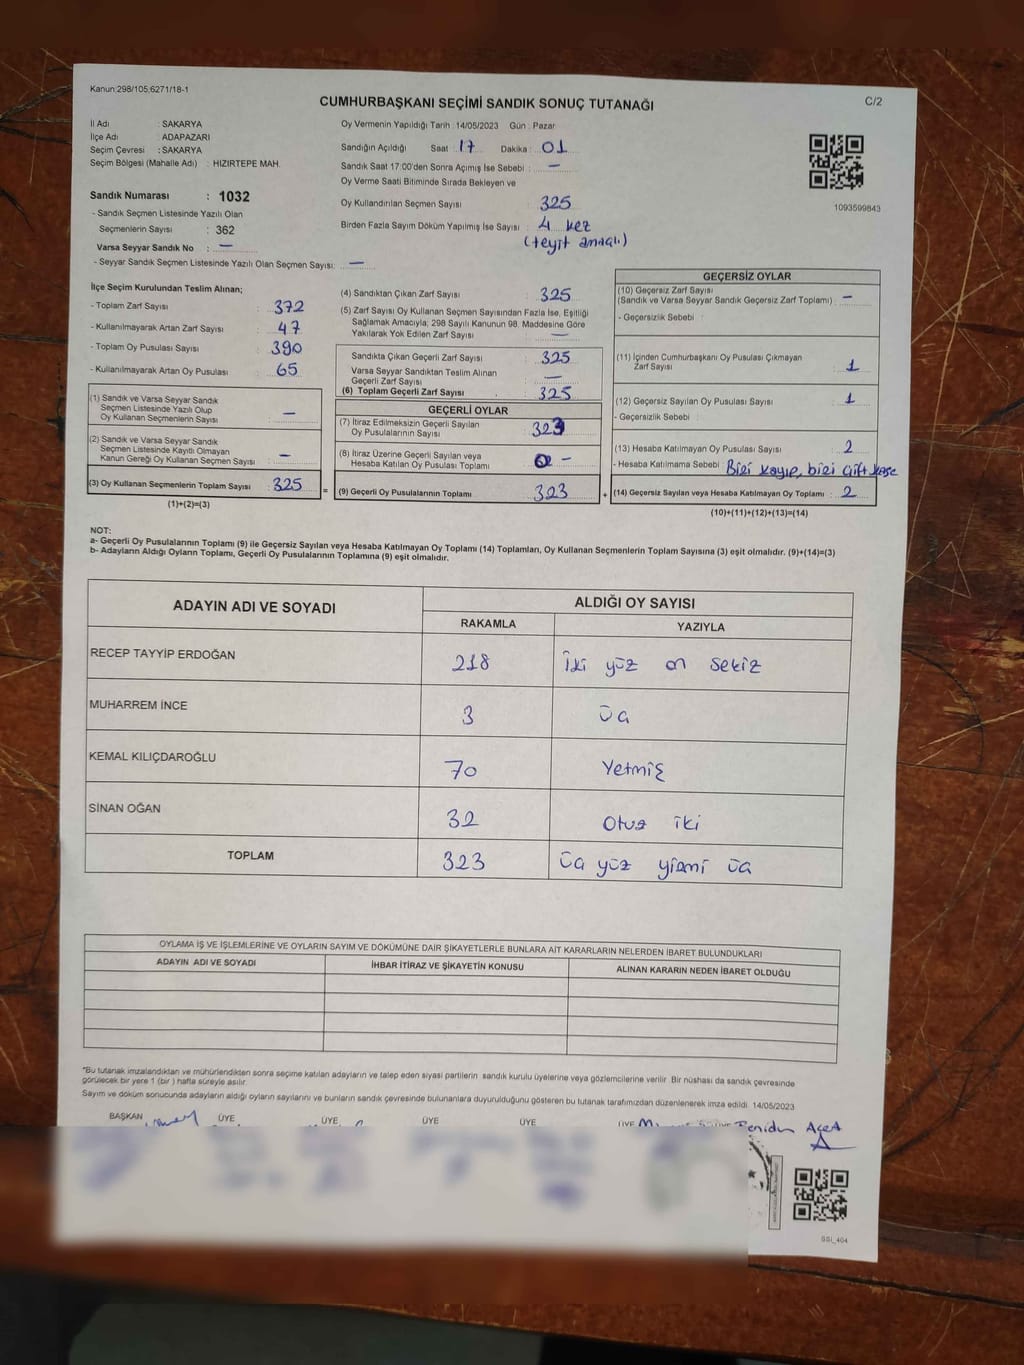 Kanun:298/105,6271/18-1
CUMHURBAŞKANI SEÇİMİ SANDIK SONUÇ TUTANAĞI
C/2
İl Adı : SAKARYA
İlçe Adı : ADAPAZARI
Seçim Çevresi : SAKARYA
Seçim Bölgesi (Mahalle Adı) : HIZIRTEPE MAH.
Sandık Numarası : 1032
- Sandık Seçmen Listesinde Yazılı Olan
Seçmenlerin Sayısı : 362
Varsa Seyyar Sandık No : —
- Seyyar Sandık Seçmen Listesinde Yazılı Olan Seçmen Sayısı: —
Oy Vermenin Yapıldığı Tarih : 14/05/2023 Gün : Pazar
Sandığın Açıldığı Saat : 17 Dakika : 01
Sandık Saat 17:00'den Sonra Açılmış İse Sebebi : —
Oy Verme Saati Bitiminde Sırada Bekleyen ve
Oy Kullandırılan Seçmen Sayısı : 325
Birden Fazla Sayım Döküm Yapılmış İse Sayısı : 4 kez
(teyit amaçlı)
1093599843
İlçe Seçim Kurulundan Teslim Alınan;
- Toplam Zarf Sayısı : 372
- Kullanılmayarak Artan Zarf Sayısı : 47
- Toplam Oy Pusulası Sayısı : 390
- Kullanılmayarak Artan Oy Pusulası : 65
(1) Sandık ve Varsa Seyyar Sandık
Seçmen Listesinde Yazılı Olup
Oy Kullanan Seçmenlerin Sayısı : —
(2) Sandık ve Varsa Seyyar Sandık
Seçmen Listesinde Kayıtlı Olmayan
Kanun Gereği Oy Kullanan Seçmen Sayısı : —
(3) Oy Kullanan Seçmenlerin Toplam Sayısı : 325
(1)+(2)=(3)
(4) Sandıktan Çıkan Zarf Sayısı : 325
(5) Zarf Sayısı Oy Kullanan Seçmen Sayısından Fazla İse, Eşitliği
Sağlamak Amacıyla; 298 Sayılı Kanunun 98. Maddesine Göre
Yakılarak Yok Edilen Zarf Sayısı : —
Sandıkta Çıkan Geçerli Zarf Sayısı : 325
Varsa Seyyar Sandıktan Teslim Alınan
Geçerli Zarf Sayısı : —
(6) Toplam Geçerli Zarf Sayısı : 325
GEÇERLİ OYLAR
(7) İtiraz Edilmeksizin Geçerli Sayılan
Oy Pusulalarının Sayısı : 323
(8) İtiraz Üzerine Geçerli Sayılan veya
Hesaba Katılan Oy Pusulası Toplamı : 0 —
= (9) Geçerli Oy Pusulalarının Toplamı : 323
GEÇERSİZ OYLAR
(10) Geçersiz Zarf Sayısı
(Sandık ve Varsa Seyyar Sandık Geçersiz Zarf Toplamı) : —
- Geçersizlik Sebebi :
(11) İçinden Cumhurbaşkanı Oy Pusulası Çıkmayan
Zarf Sayısı : 1
(12) Geçersiz Sayılan Oy Pusulası Sayısı : 1
- Geçersizlik Sebebi :
(13) Hesaba Katılmayan Oy Pusulası Sayısı : 2
- Hesaba Katılmama Sebebi : Biri kayıp, biri çift kaşe
+ (14) Geçersiz Sayılan veya Hesaba Katılmayan Oy Toplamı : 2
(10)+(11)+(12)+(13)=(14)
NOT:
a- Geçerli Oy Pusulalarının Toplamı (9) ile Geçersiz Sayılan veya Hesaba Katılmayan Oy Toplamı (14) Toplamları, Oy Kullanan Seçmenlerin Toplam Sayısına (3) eşit olmalıdır. (9)+(14)=(3)
b- Adayların Aldığı Oyların Toplamı, Geçerli Oy Pusulalarının Toplamına (9) eşit olmalıdır.
ADAYIN ADI VE SOYADI
ALDIĞI OY SAYISI
RAKAMLA YAZIYLA
RECEP TAYYİP ERDOĞAN 218 İki yüz on sekiz
MUHARREM İNCE 3 Üç
KEMAL KILIÇDAROĞLU 70 Yetmiş
SİNAN OĞAN 32 Otuz iki
TOPLAM 323 Üç yüz yirmi üç
OYLAMA İŞ VE İŞLEMLERİNE VE OYLARIN SAYIM VE DÖKÜMÜNE DAİR ŞİKAYETLERLE BUNLARA AİT KARARLARIN NELERDEN İBARET BULUNDUKLARI
ADAYIN ADI VE SOYADI İHBAR İTİRAZ VE ŞİKAYETİN KONUSU ALINAN KARARIN NEDEN İBARET OLDUĞU
*Bu tutanak imzalandıktan ve mühürlendikten sonra seçime katılan adayların ve talep eden siyasi partilerin sandık kurulu üyelerine veya gözlemcilerine verilir. Bir nüshası da sandık çevresinde
görülecek bir yere 1 (bir ) hafta süreyle asılır.
Sayım ve döküm sonucunda adayların aldığı oyların sayılarını ve bunların sandık çevresinde bulunanlara duyurulduğunu gösteren bu tutanak tarafımızdan düzenlenerek imza edildi. 14/05/2023
BAŞKAN ÜYE ÜYE ÜYE ÜYE ÜYE